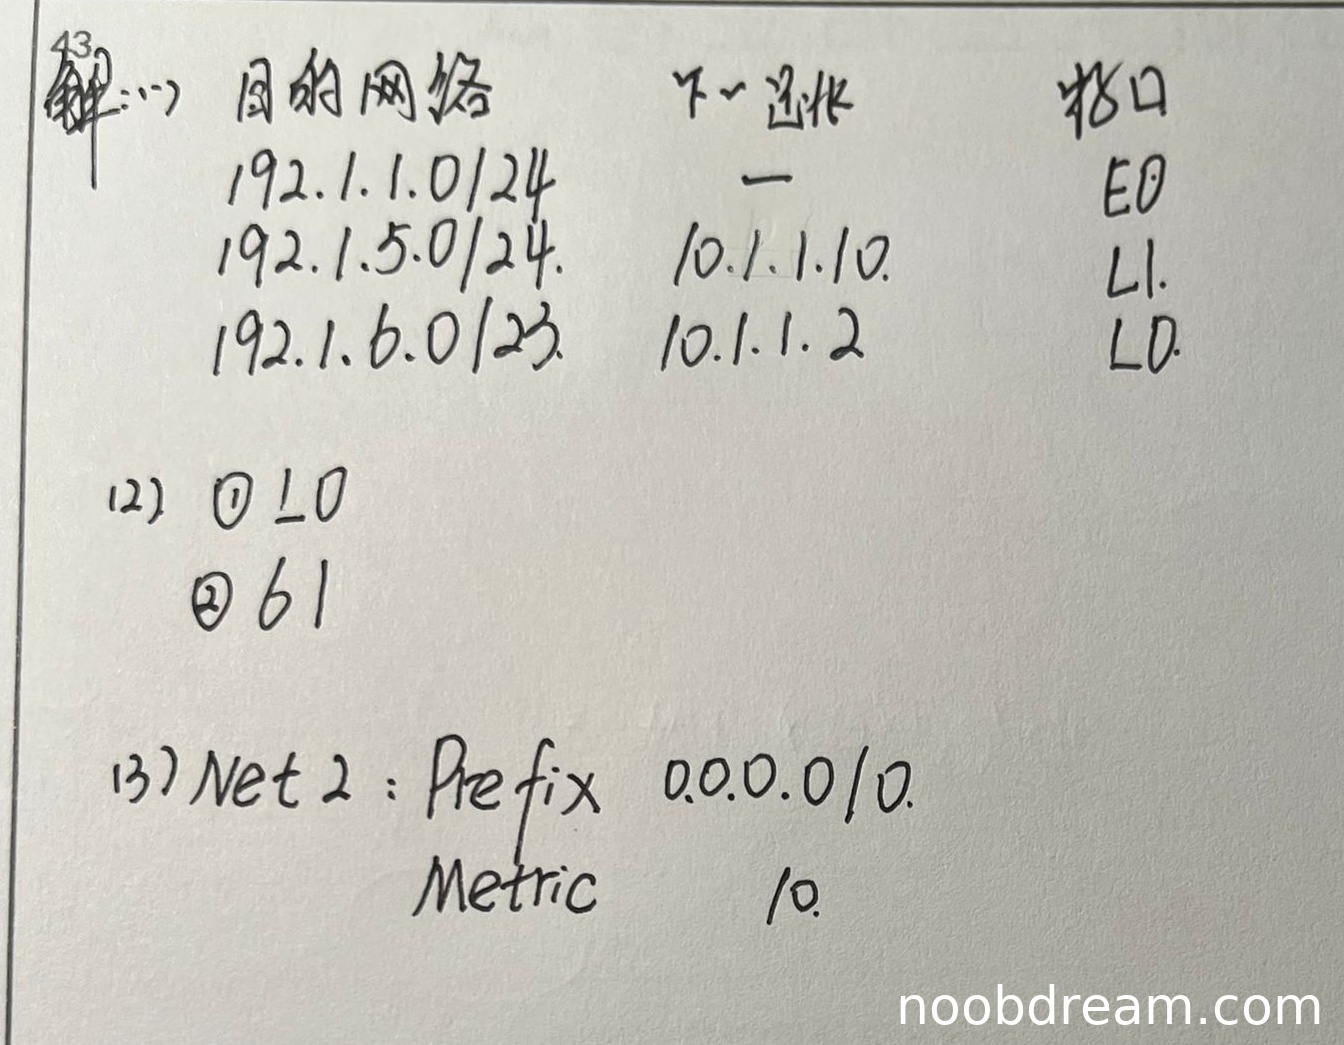 43
解:(1) 目的网络 下一跳 接口
192.1.1.0/24 — E0
192.1.5.0/24. 10.1.1.10. L1.
192.1.6.0/23. 10.1.1.2 L0.
(2) ① L0
② 61
(3) Net 2 : Prefix 0.0.0.0/0.
Metric 10.
noobdream.com